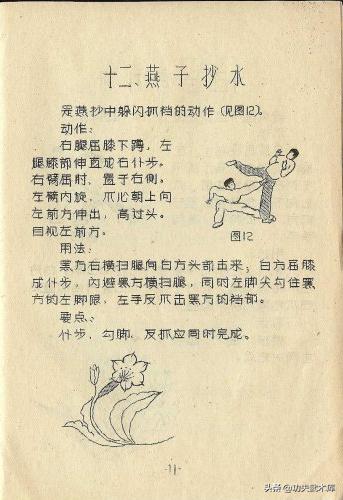 十二、燕子抄水
是燕抄中躲闪抓档的动作（见图12）。
动作：
右腿屈膝下蹲，左
腿膝部伸直成右仆步。
右臂屈肘，置于右侧。
左臂内旋，爪心朝上向
左前方伸出，高过头。
目视左前方。
图12
用法：
黑方右横扫腿向白方头部击来，白方屈膝
成仆步，内避黑方横扫腿，同时左脚尖勾住黑
方的左脚跟，左手反爪击黑方的裆部。
要点：
仆步，勾脚，反抓应同时完成。
-11-
头条@功夫武术库